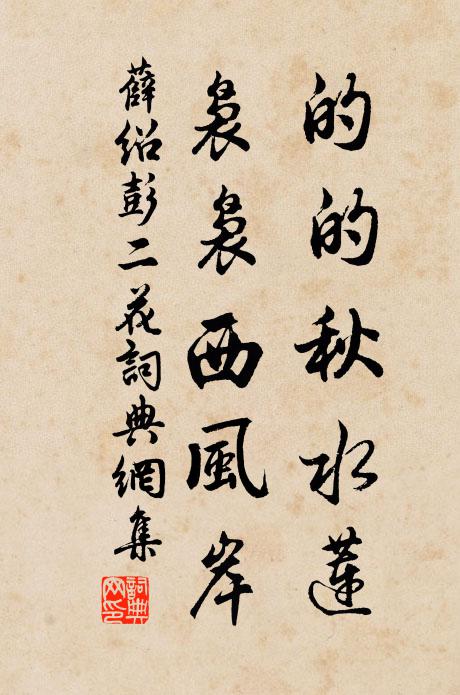 的的秋水蓮
裊裊西風岸
薛紹彭二花詞典網集
詞典網印